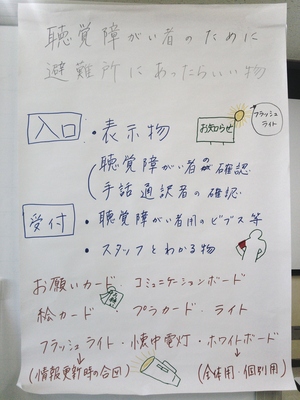 聴覚障がい者のために
避難所にあったらいい物
入口
・表示物
お知らせ
フラッシュ
ライト
聴覚障がい者の確認
手話通訳者の確認
受付
・聴覚障がい者用のビブス等
・スタッフとわかる物
お願いカード コミュニケーションボード
絵カード プラカード・ライト
フラッシュライト・懐中電灯・ホワイトボード
(情報更新時の合図)
(全体用・個別用)